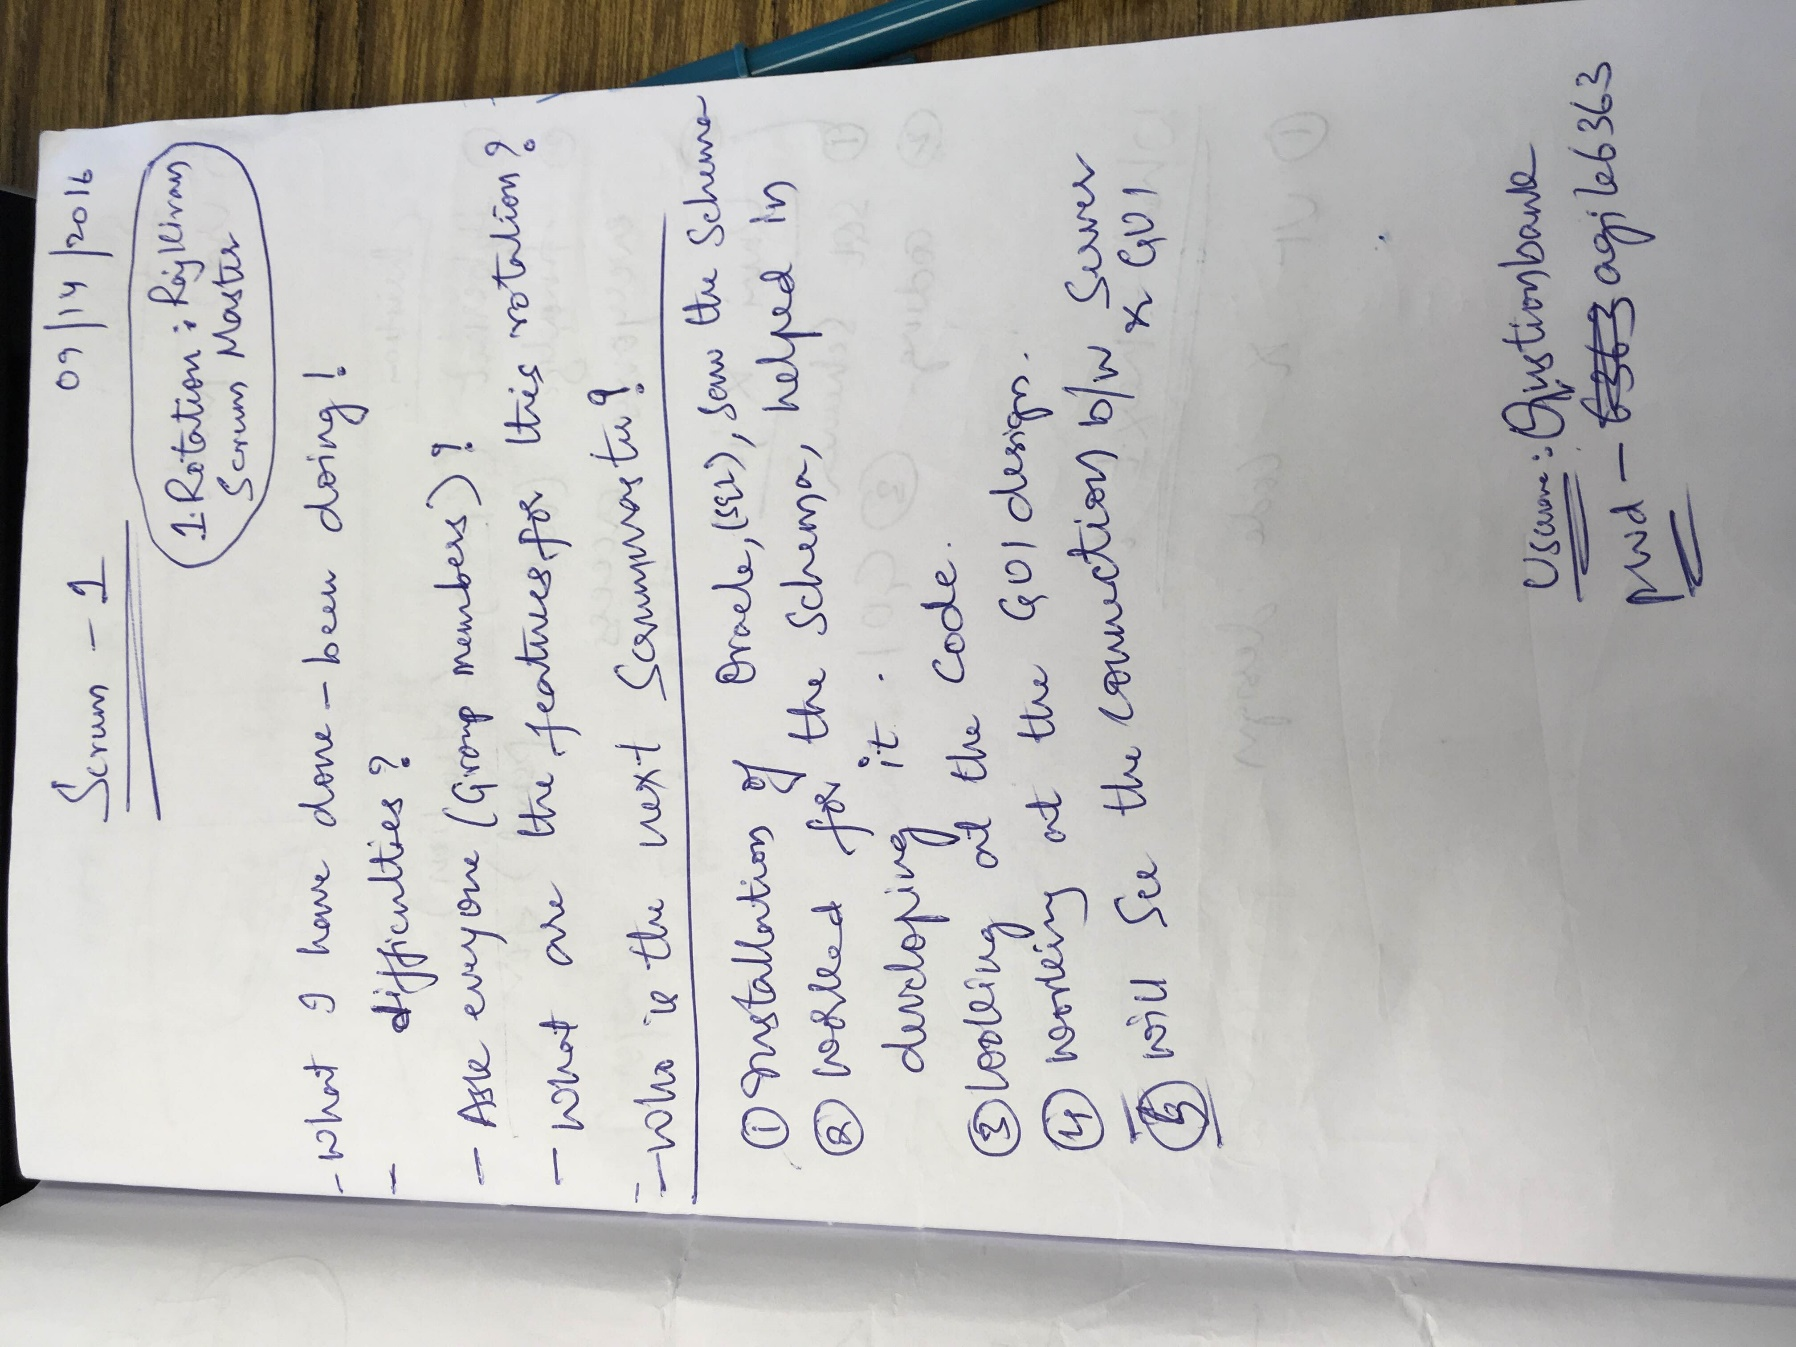 Scrum - 1 09/14/2016
1. Rotation : Rajkiran
Scrum Master
- what I have done - been doing!
- difficulties?
- Ask everyone (Group members)?
- what are the features for this rotation?
- who is the next Scrum master?
① Installation of Oracle, (SQL), saw the Schema
② worked for the schema, helped in
developing it.
③ looking at the code.
④ working at the GUI design.
⑤ will see the connection b/w Server
& GUI
Username: Questionbank
pwd - 6363 agile6363